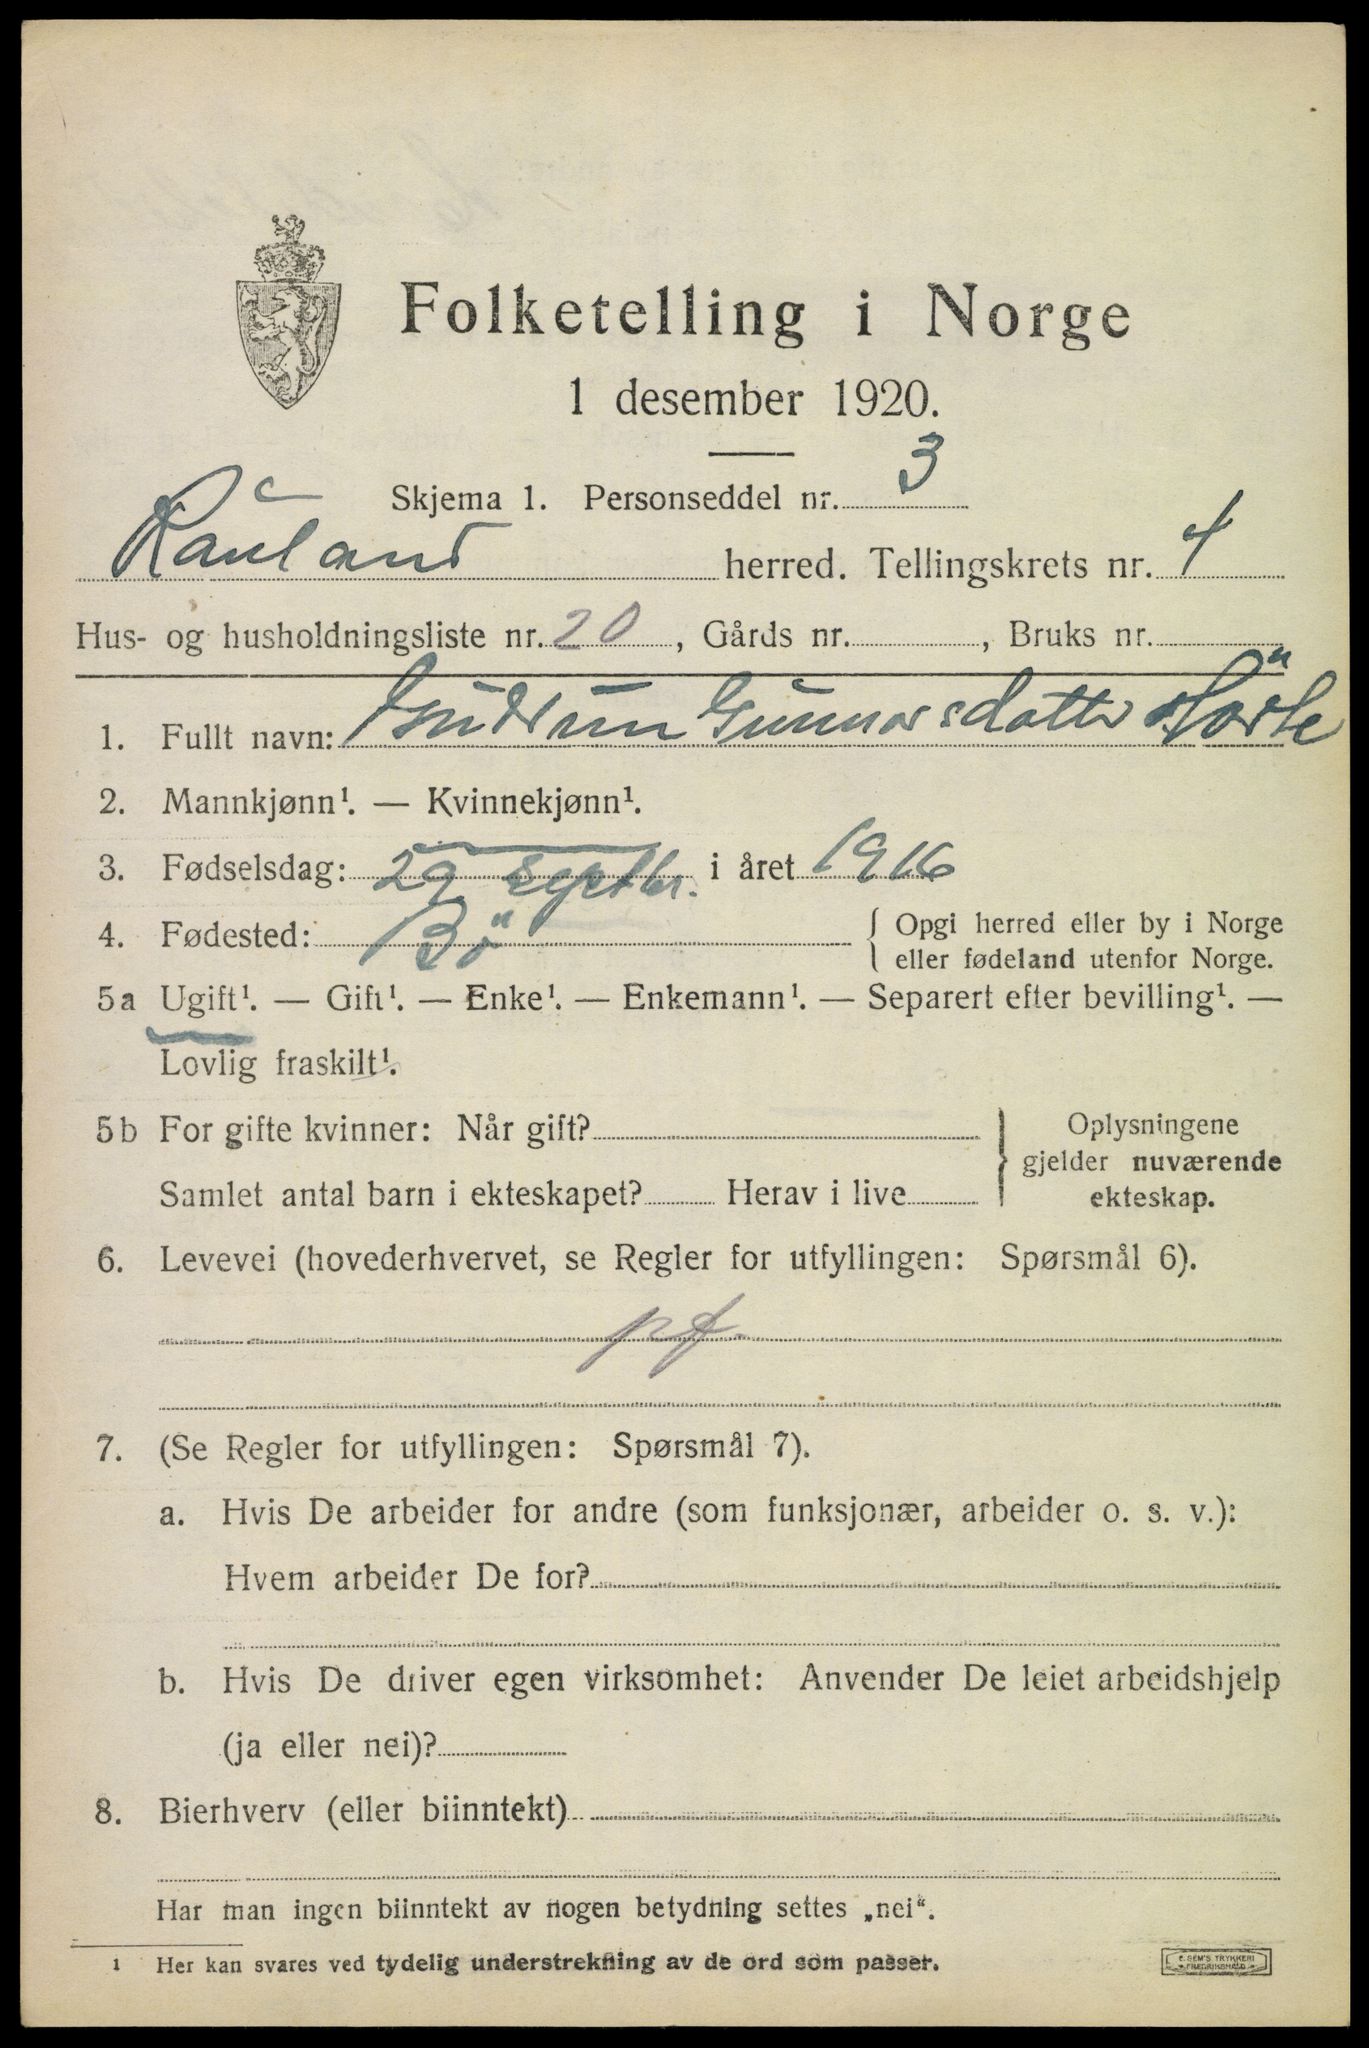 Folketelling i Norge
1 desember 1920.
Skjema 1. Personseddel nr. 3
Rauland herred. Tellingskrets nr. 4
Hus- og husholdningsliste nr. 20, Gårds nr. , Bruks nr.
1. Fullt navn: Gudrun Gunnarsdatter
2. Mannkjønn¹. — Kvinnekjønn¹.
3. Fødselsdag: 29 septbr. i året 1916
4. Fødested: Bö { Opgi herred eller by i Norge
eller fødeland utenfor Norge.
5a Ugift¹. — Gift¹. — Enke¹. — Enkemann¹. — Separert efter bevilling¹. —
Lovlig fraskilt¹.
5b For gifte kvinner: Når gift? } Oplysningene
gjelder nuværende
Samlet antal barn i ekteskapet? Herav i live
ekteskap.
6. Levevei (hovederhvervet, se Regler for utfyllingen: Spørsmål 6).
pf.
7. (Se Regler for utfyllingen: Spørsmål 7).
a. Hvis De arbeider for andre (som funksjonær, arbeider o. s. v.):
Hvem arbeider De for?
b. Hvis De driver egen virksomhet: Anvender De leiet arbeidshjelp
(ja eller nei)?
8. Bierhverv (eller biinntekt)
Har man ingen biinntekt av nogen betydning settes „nei“.
¹ Her kan svares ved tydelig understrekning av de ord som passer.
E. SEM'S TRYKKERI
FREDRIKSHALD